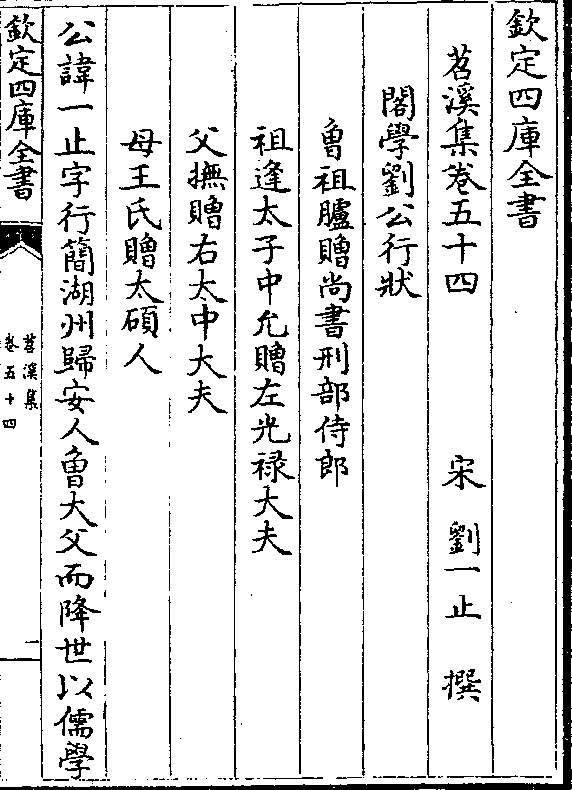 欽定四庫全書
苕溪集卷五十四
宋 劉一止 撰
閣學劉公行狀
曾祖臚贈尚書刑部侍郎
祖逢太子中允贈左光禄大夫
父撫贈右太中大夫
母王氏贈太碩人
公諱一止字行簡湖州歸安人曾大父而降世以儒學
欽定四庫全書
苕溪集
卷五十四
一